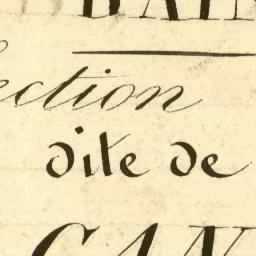 BAIN
ection
dite de
CAN